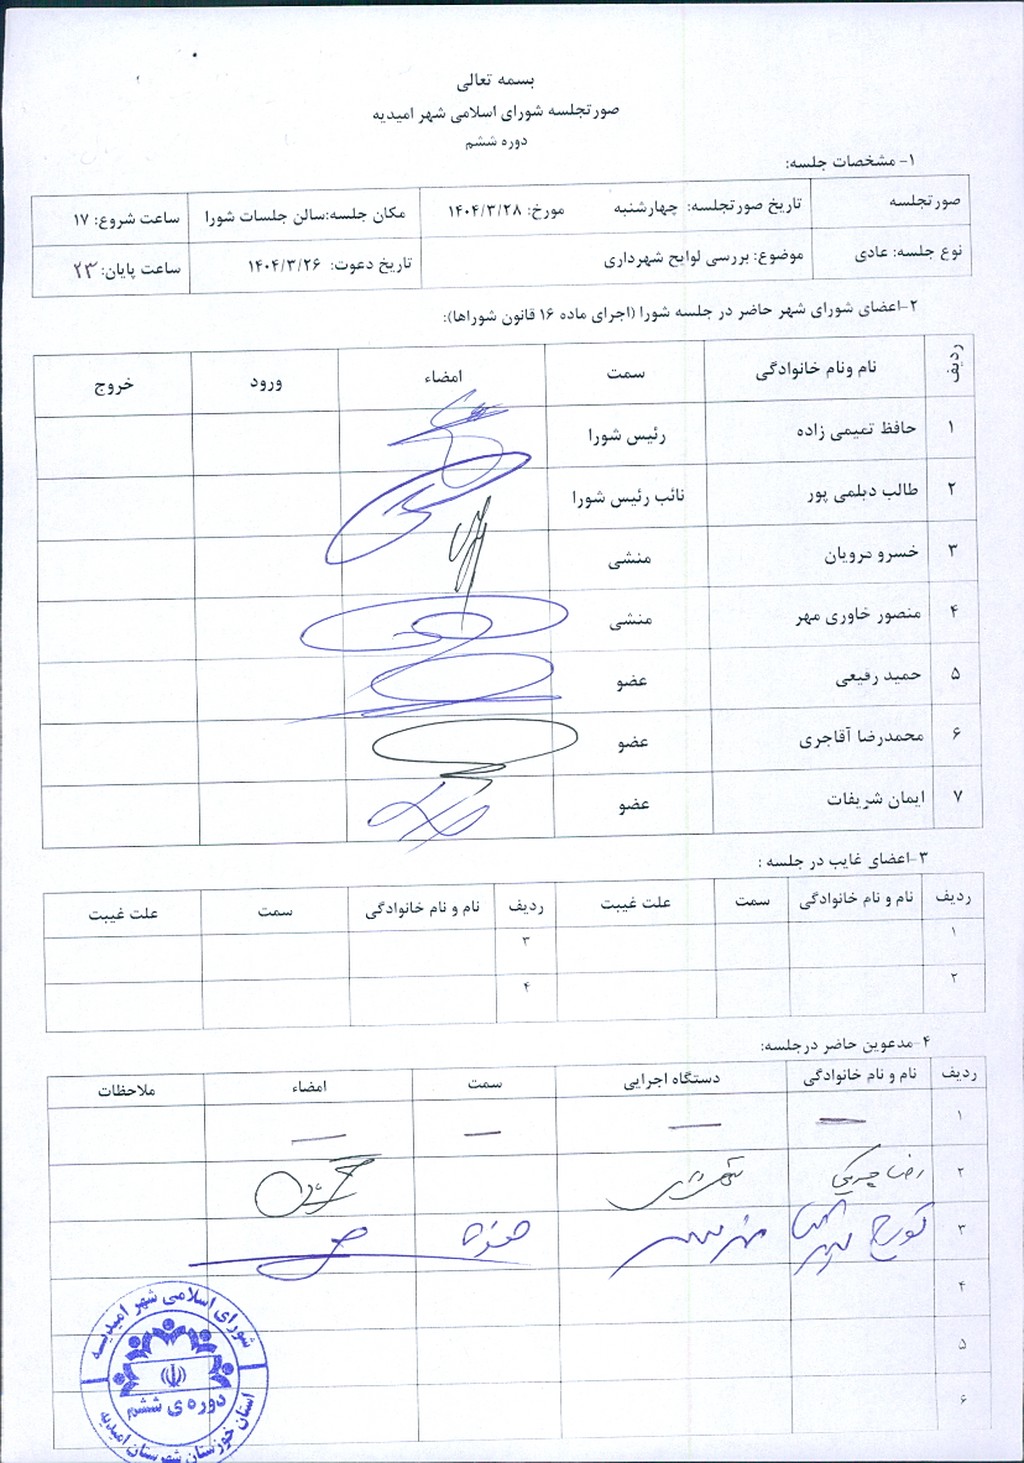 بسمه تعالی
صورتجلسه شورای اسلامی شهر امیدیه
دوره ششم
۱- مشخصات جلسه:
صورتجلسه تاریخ صورتجلسه: چهارشنبه مورخ: ۱۴۰۴/۳/۲۸ مکان جلسه:سالن جلسات شورا ساعت شروع: ۱۷
نوع جلسه: عادی موضوع: بررسی لوایح شهرداری تاریخ دعوت: ۱۴۰۴/۳/۲۶ ساعت پایان: ۲۳
۲-اعضای شورای شهر حاضر در جلسه شورا (اجرای ماده ۱۶ قانون شوراها):
ردیف نام ونام خانوادگی سمت امضاء ورود خروج
۱ حافظ تمیمی زاده رئیس شورا
۲ طالب دیلمی پور نائب رئیس شورا
۳ خسرو مرویان منشی
۴ منصور خاوری مهر منشی
۵ حمید رفیعی عضو
۶ محمدرضا آقاجری عضو
۷ ایمان شریفات عضو
۳-اعضای غایب در جلسه :
ردیف نام و نام خانوادگی سمت علت غیبت ردیف نام و نام خانوادگی سمت علت غیبت
۱ ۳
۲ ۴
۴-مدعوین حاضر درجلسه:
ردیف نام و نام خانوادگی دستگاه اجرایی سمت امضاء ملاحظات
۱
۲ رضا
۳
۴
۵
۶
شورای اسلامی شهر امیدیه
دوره ی ششم
استان خوزستان شهرستان امیدیه